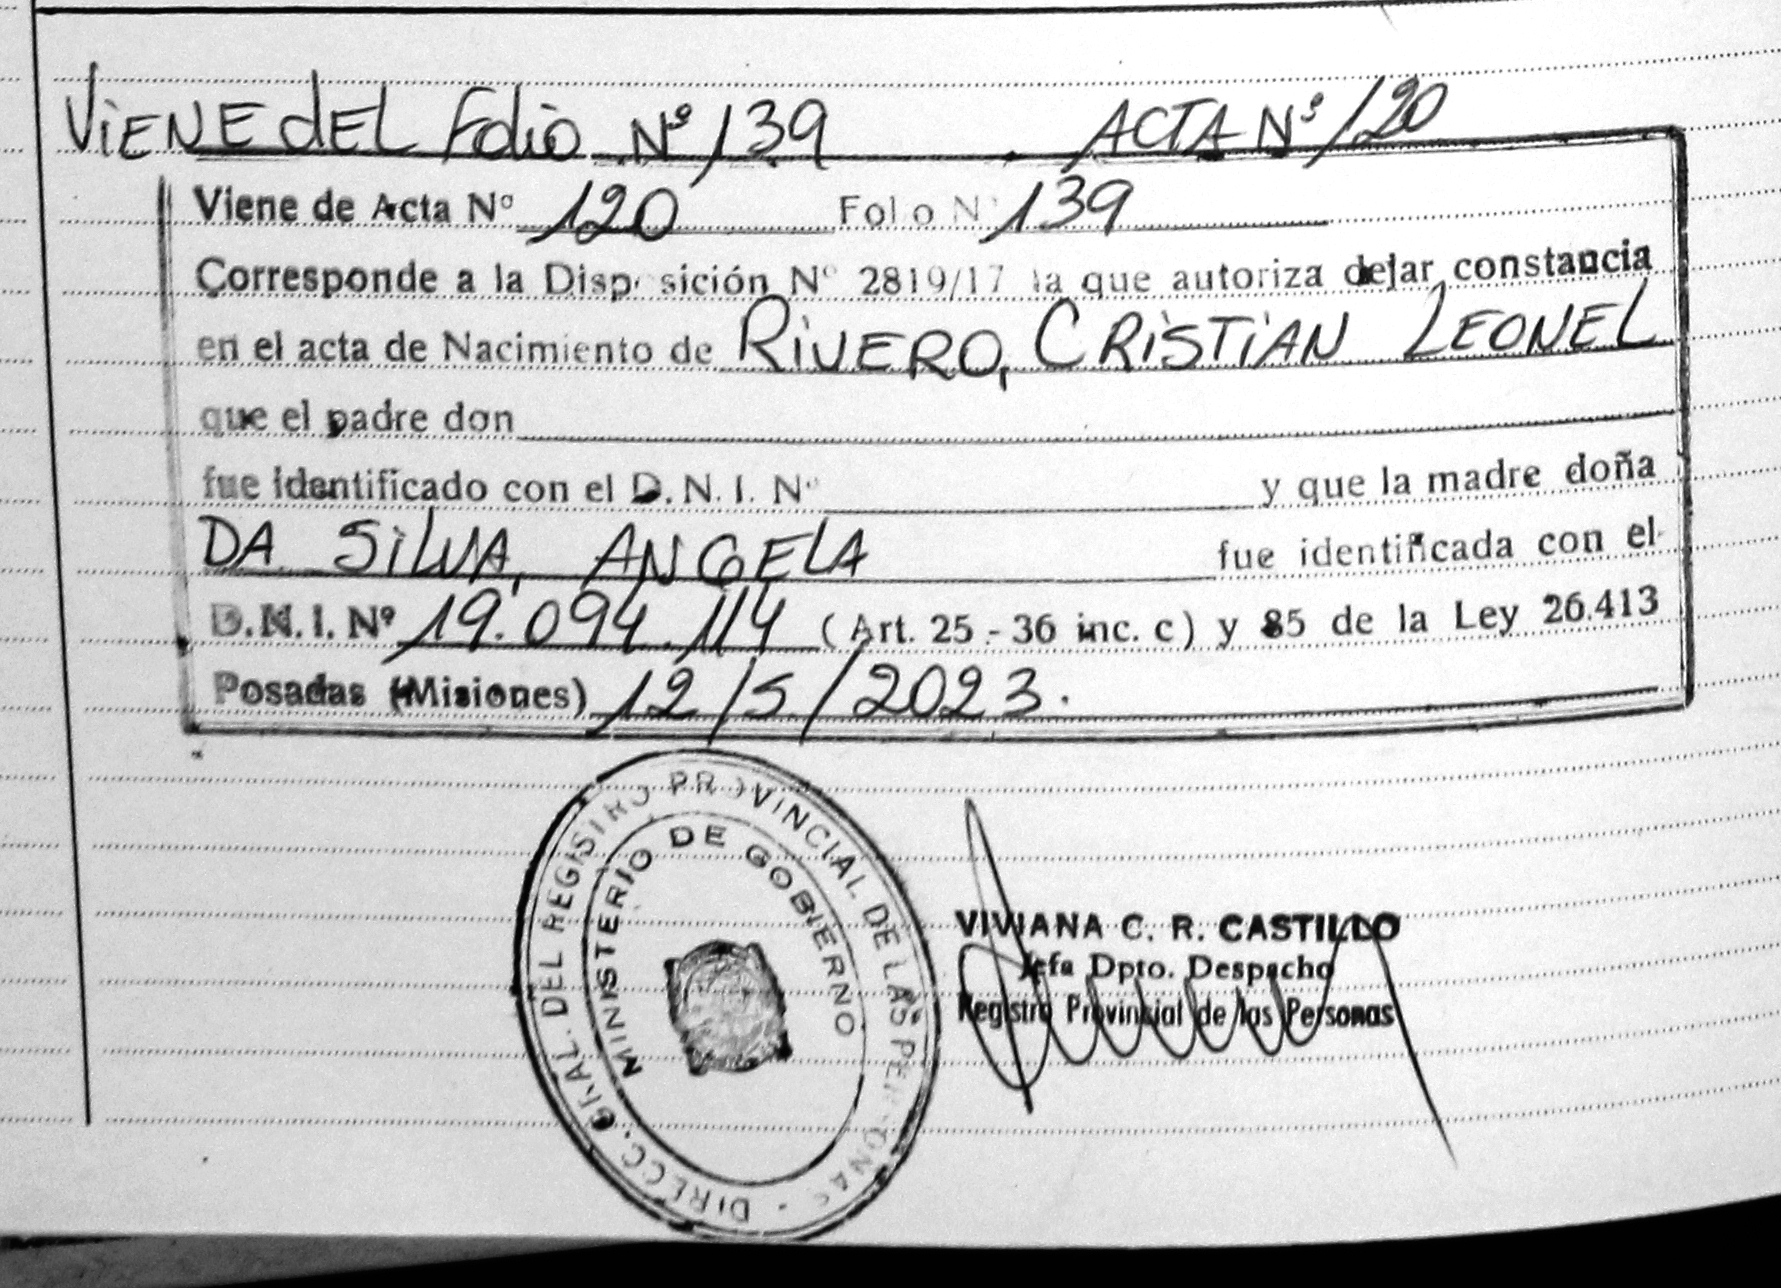 ViENE dEL Folio Nº 139 ACTA Nº 120
Viene de Acta Nº 120 Folio Nº 139
Corresponde a la Disposición Nº 2819/17 la que autoriza dejar constancia
en el acta de Nacimiento de RiVERO, CRiSTiAN LEONEL
que el padre don
fue identificado con el D.N.I. Nº y que la madre doña
DA SiLVA, ANGELA fue identificada con el
D.N.I. Nº 19.094.114 (Art. 25 - 36 inc. c) y 85 de la Ley 26.413
Posadas (Misiones) 12/5/2023.
DIRECC. GRAL. DEL REGISTRO PROVINCIAL DE LAS PERSONAS -
MINISTERIO DE GOBIERNO
VIVIANA C. R. CASTILLO
Jefa Dpto. Despacho
Registro Provincial de las Personas